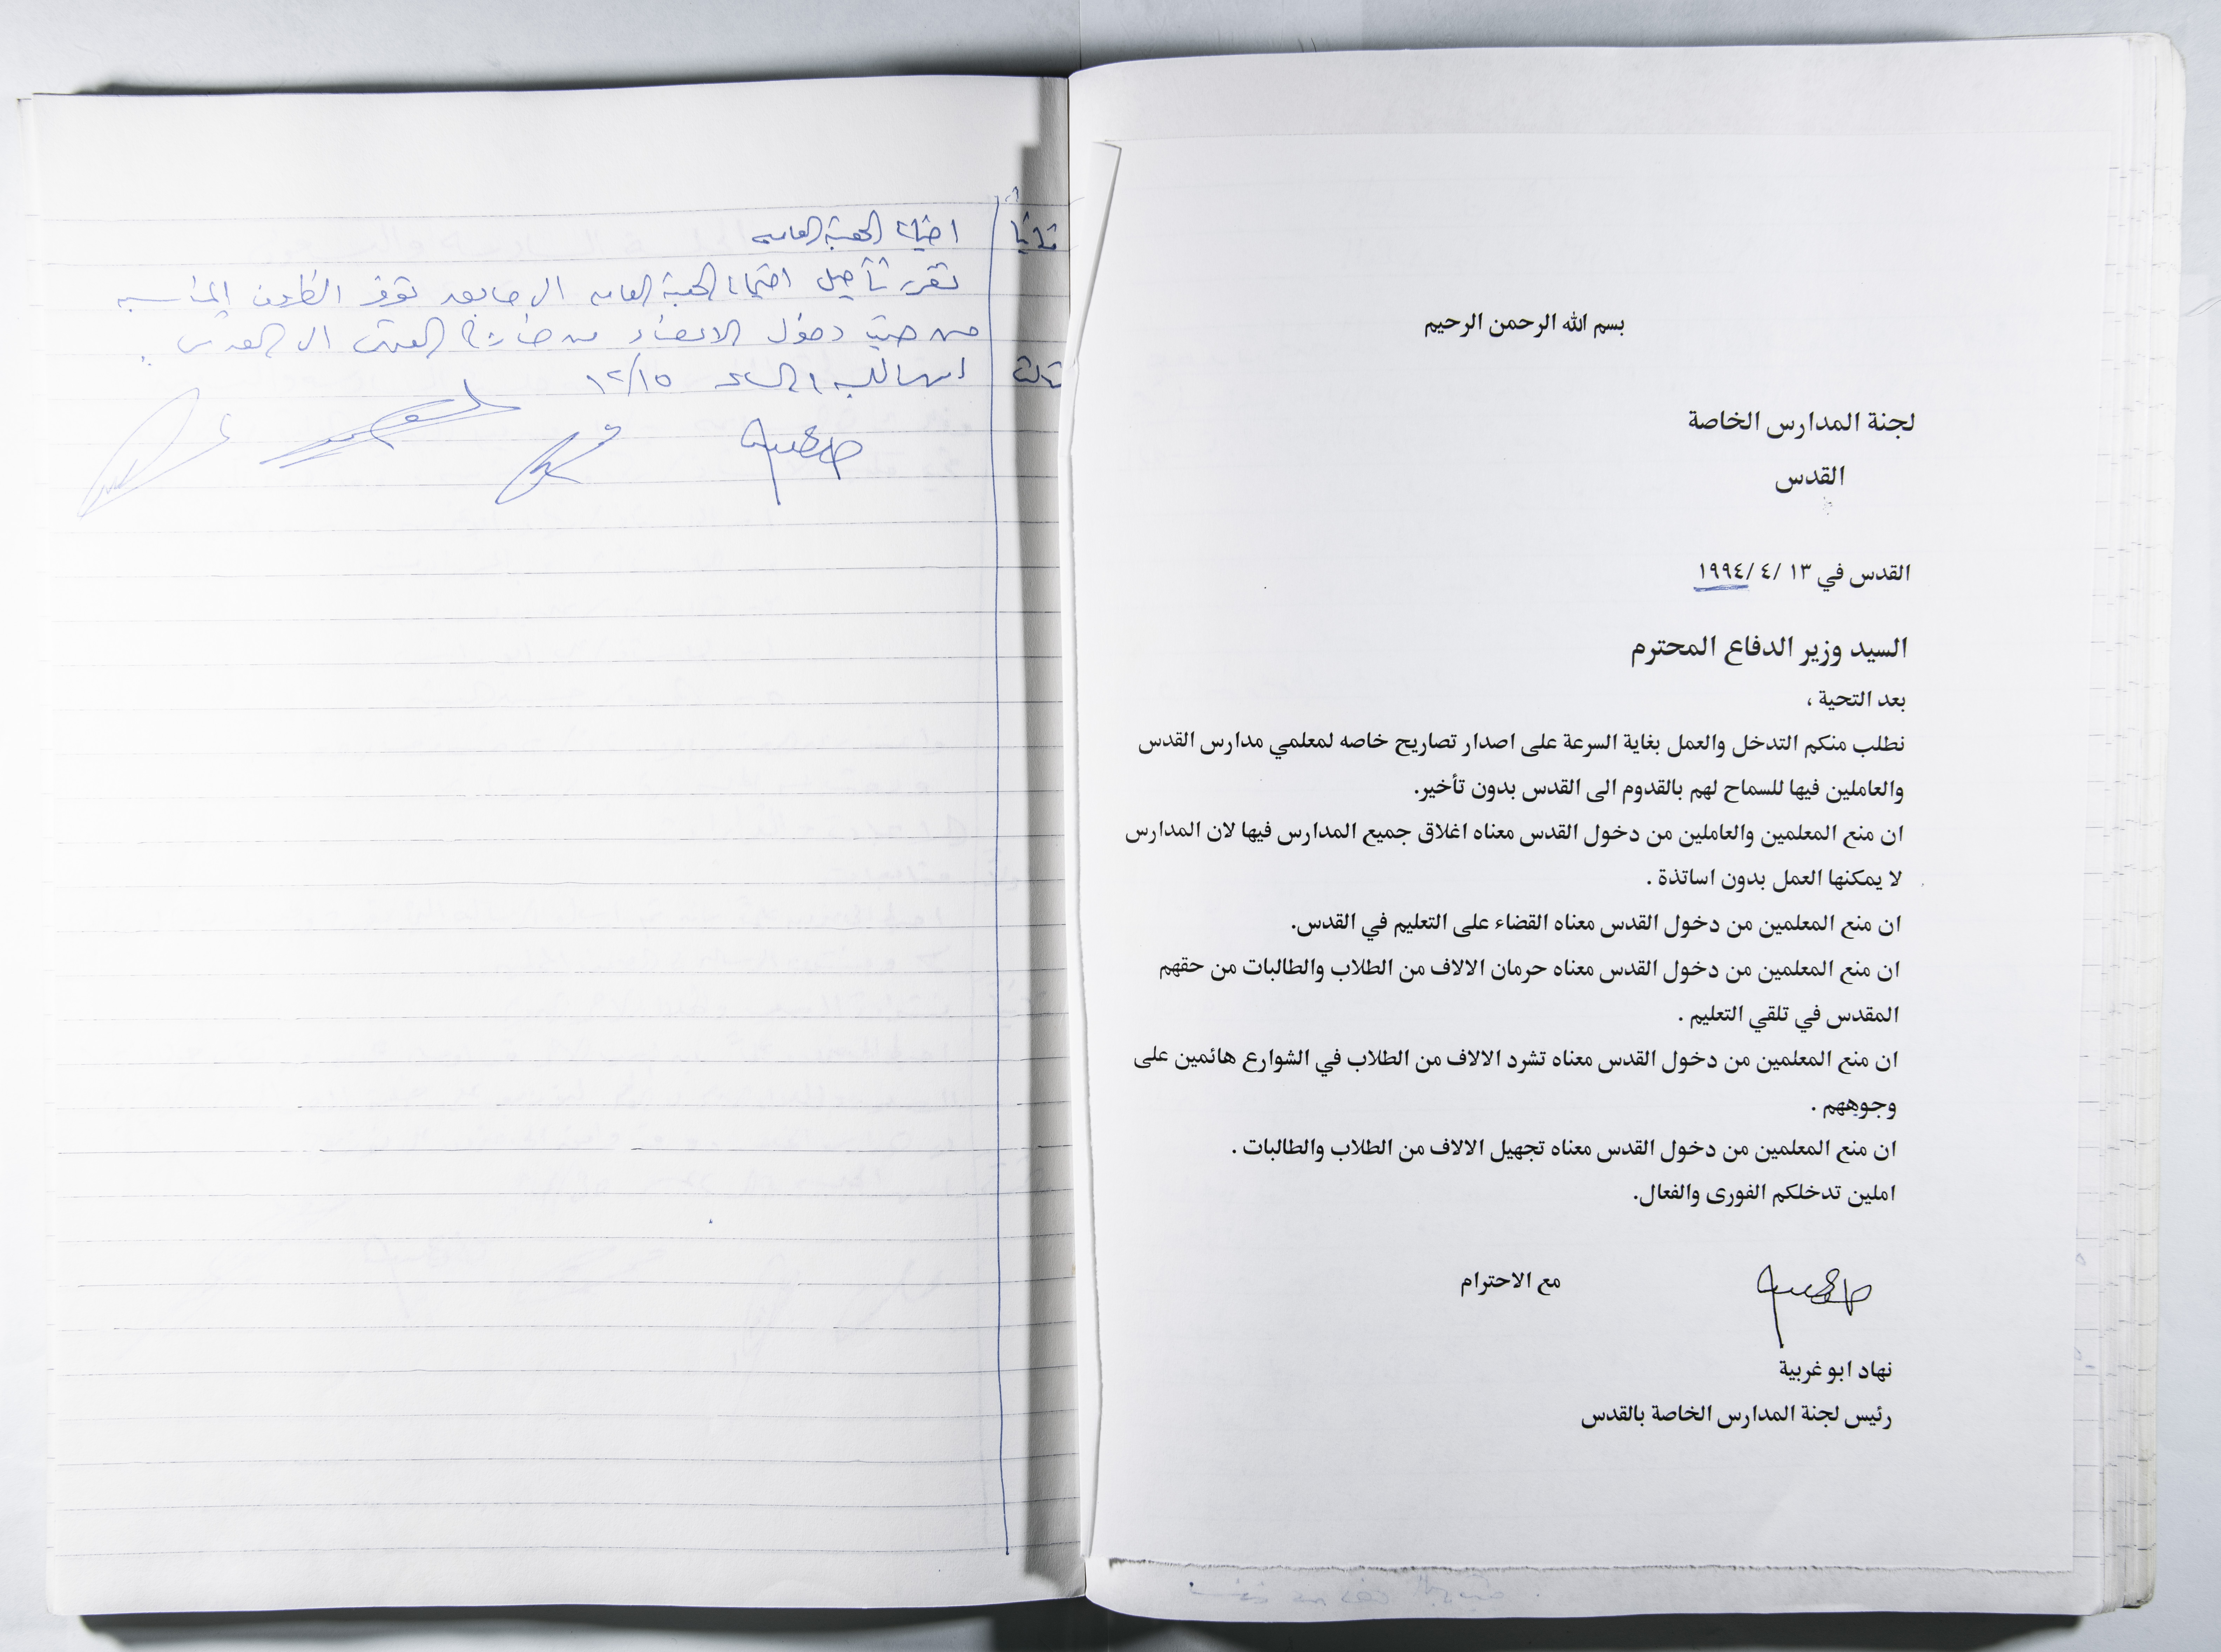 بسم الله الرحمن الرحيم
لجنة المدارس الخاصة
القدس
القدس في ١٣ /٤ /١٩٩٤
السيد وزير الدفاع المحترم
بعد التحية ،
نطلب منكم التدخل والعمل بغاية السرعة على اصدار تصاريح خاصه لمعلمي مدارس القدس
والعاملين فيها للسماح لهم بالقدوم الى القدس بدون تأخير.
ان منع المعلمين والعاملين من دخول القدس معناه اغلاق جميع المدارس فيها لان المدارس
لا يمكنها العمل بدون اساتذة .
ان منع المعلمين من دخول القدس معناه القضاء على التعليم في القدس.
ان منع المعلمين من دخول القدس معناه حرمان الالاف من الطلاب والطالبات من حقهم
المقدس في تلقي التعليم .
ان منع المعلمين من دخول القدس معناه تشرد الالاف من الطلاب في الشوارع هائمين على
وجوههم .
ان منع المعلمين من دخول القدس معناه تجهيل الالاف من الطلاب والطالبات .
املين تدخلكم الفورى والفعال.
مع الاحترام
نهاد ابو غربية
رئيس لجنة المدارس الخاصة بالقدس
ثانيا اجتماع الهيئة العامه
تقرر تأجيل اجتماع الهيئة العامه الى ما بعد توفر الظروف المناسبه
من حيث دخول الاعضاء من خارج القدس الى القدس .
ثالثا الساعة ١٢/١٥